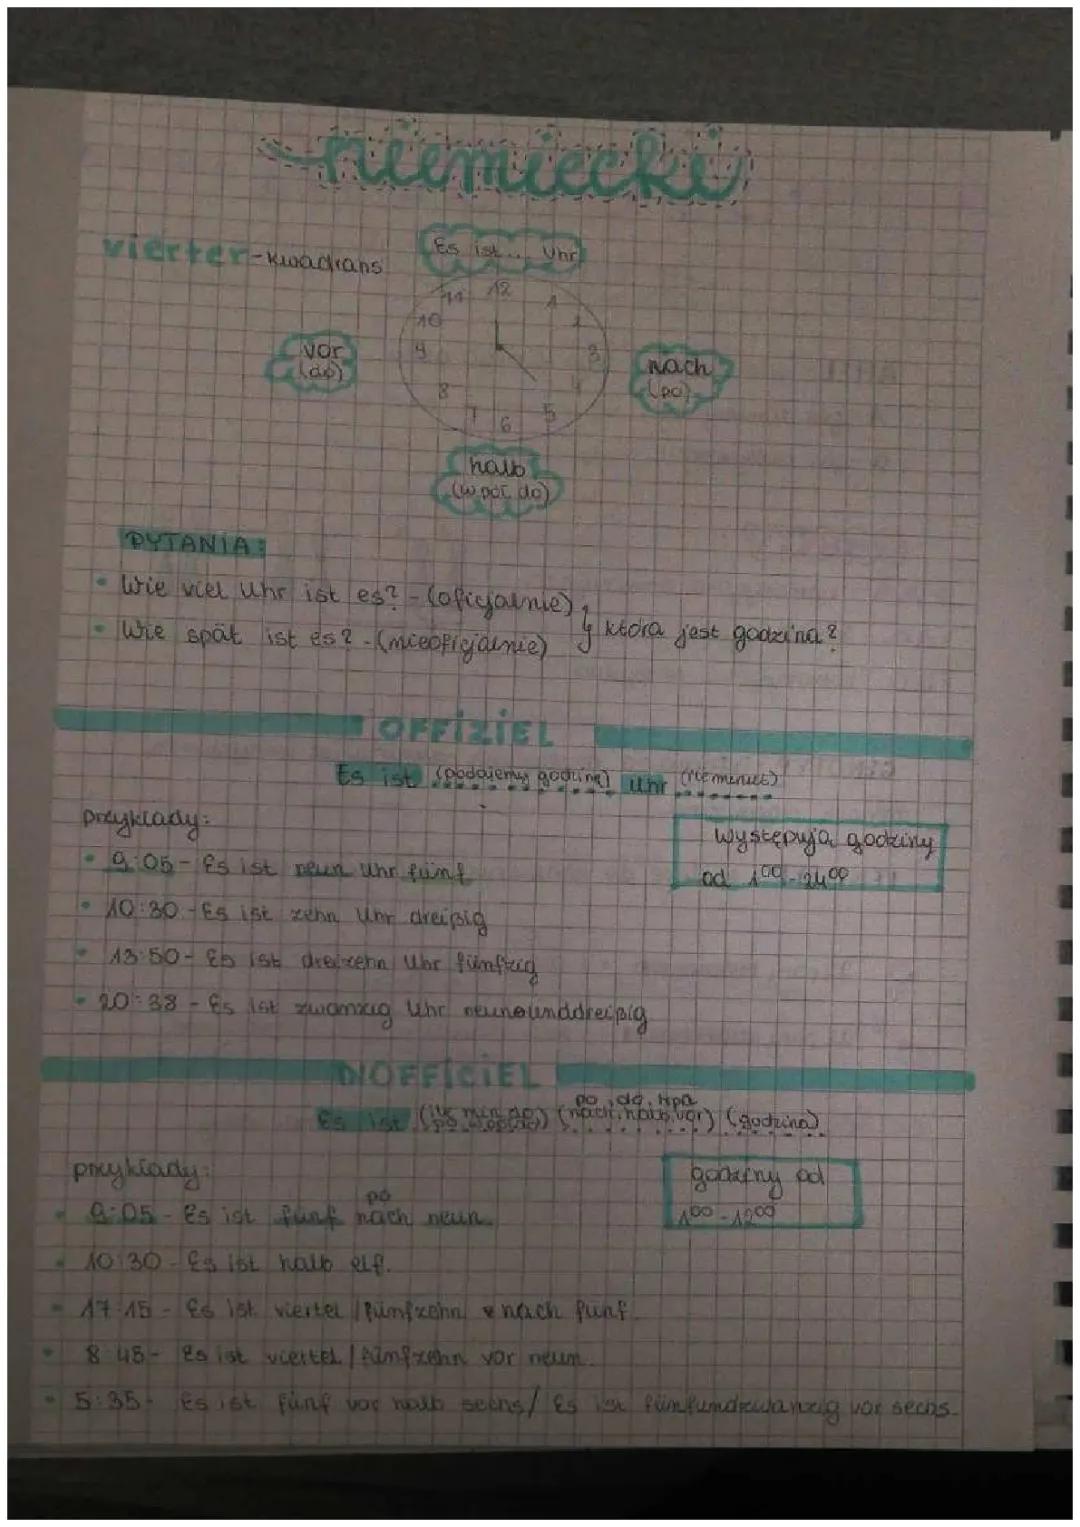 niemiecki
vierter - kwadrans
Es ist... Uhr
11 12 1
10 2
9 3
8 4
7 6 5
vor
(do)
nach
(po)
halb
(w pół do)
PYTANIA:
• Wie viel Uhr ist es? - (oficjalnie)
• Wie spät ist es? - (nieoficjalnie) } która jest godzina?
OFFIZIEL
Es ist (podajemy godzinę) Uhr (minut)
przykłady:
występują godziny
od 1⁰⁰ - 24⁰⁰
• 9:05 - Es ist neun Uhr fünf
• 10:30 - Es ist zehn Uhr dreißig
• 13:50 - Es ist dreizehn Uhr fünfzig
• 20:38 - Es ist zwanzig Uhr neunounddreißig
INOFFICIEL
Es ist (nach, halb, vor) (godzina)
przykłady:
godziny od
1⁰⁰ - 12⁰⁰
po
• 9:05 - Es ist fünf nach neun.
• 10:30 - Es ist halb elf.
• 17:15 - Es ist viertel / fünfzehn nach fünf.
• 8:45 - Es ist viertel / fünfzehn vor neun.
• 5:35 - Es ist fünf vor halb sechs / Es ist fünfundzwanzig vor sechs.